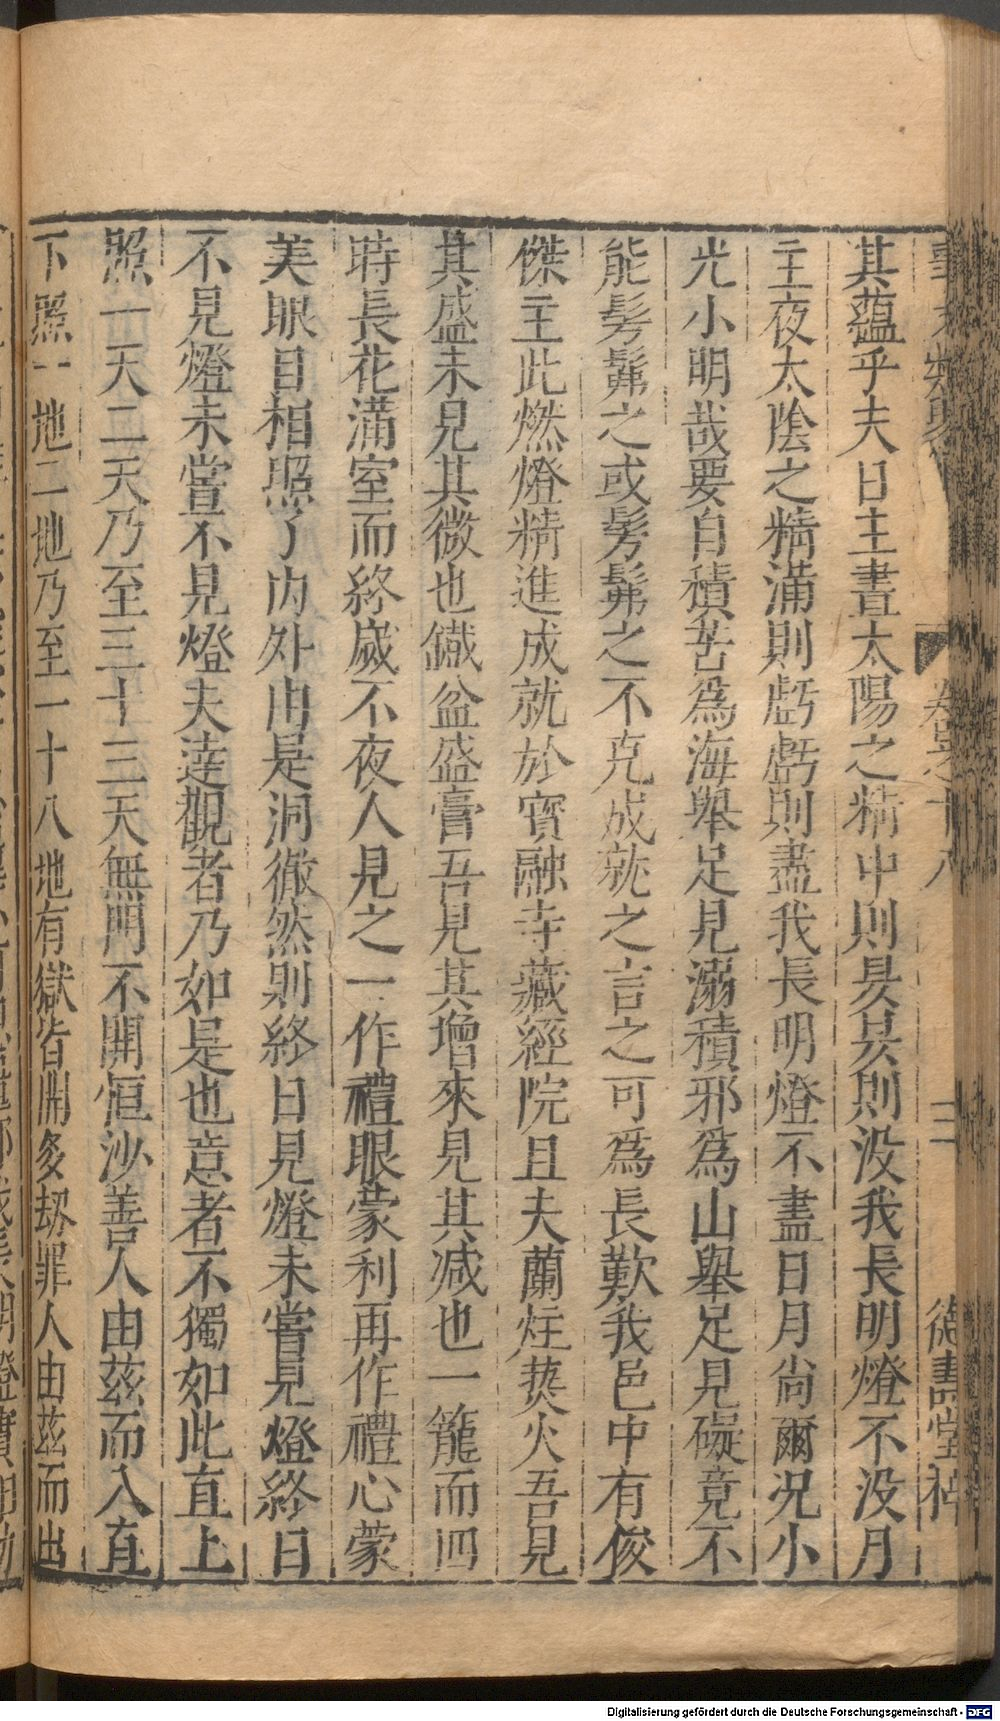 卷之十八
三
其蘊乎夫日主晝太陽之精中則昃昃則没我長明燈不没月
主夜太陰之精滿則虧虧則盡我長明燈不盡日月尚爾況小
光小明哉要自積苦爲海舉足見溺積邪爲山舉足見礙竟不
能髣髴之或髣髴之不克成就之言之可爲長歎我邑中有俊
傑主此燃燈精進成就於寳融寺藏經院且夫蘭炷爇火吾見
其盛未見其微也鐵盆盛膏吾見其增來見其减也一籠而四
時長花滿室而終嵗不夜人見之一作禮眼蒙利再作禮心蒙
美眼目相照了内外由是洞徹然則終日見燈未嘗見燈終日
不見燈未嘗不見燈夫達觀者乃如是也意者不獨如此直上
照一天二天乃至三十三天無門不開恒沙善人由茲而入直
下照一地二地乃至一十八地有獄皆開多劫罪人由茲而出
Digitalisierung gefördert durch die Deutsche Forschungsgemeinschaft - DFG